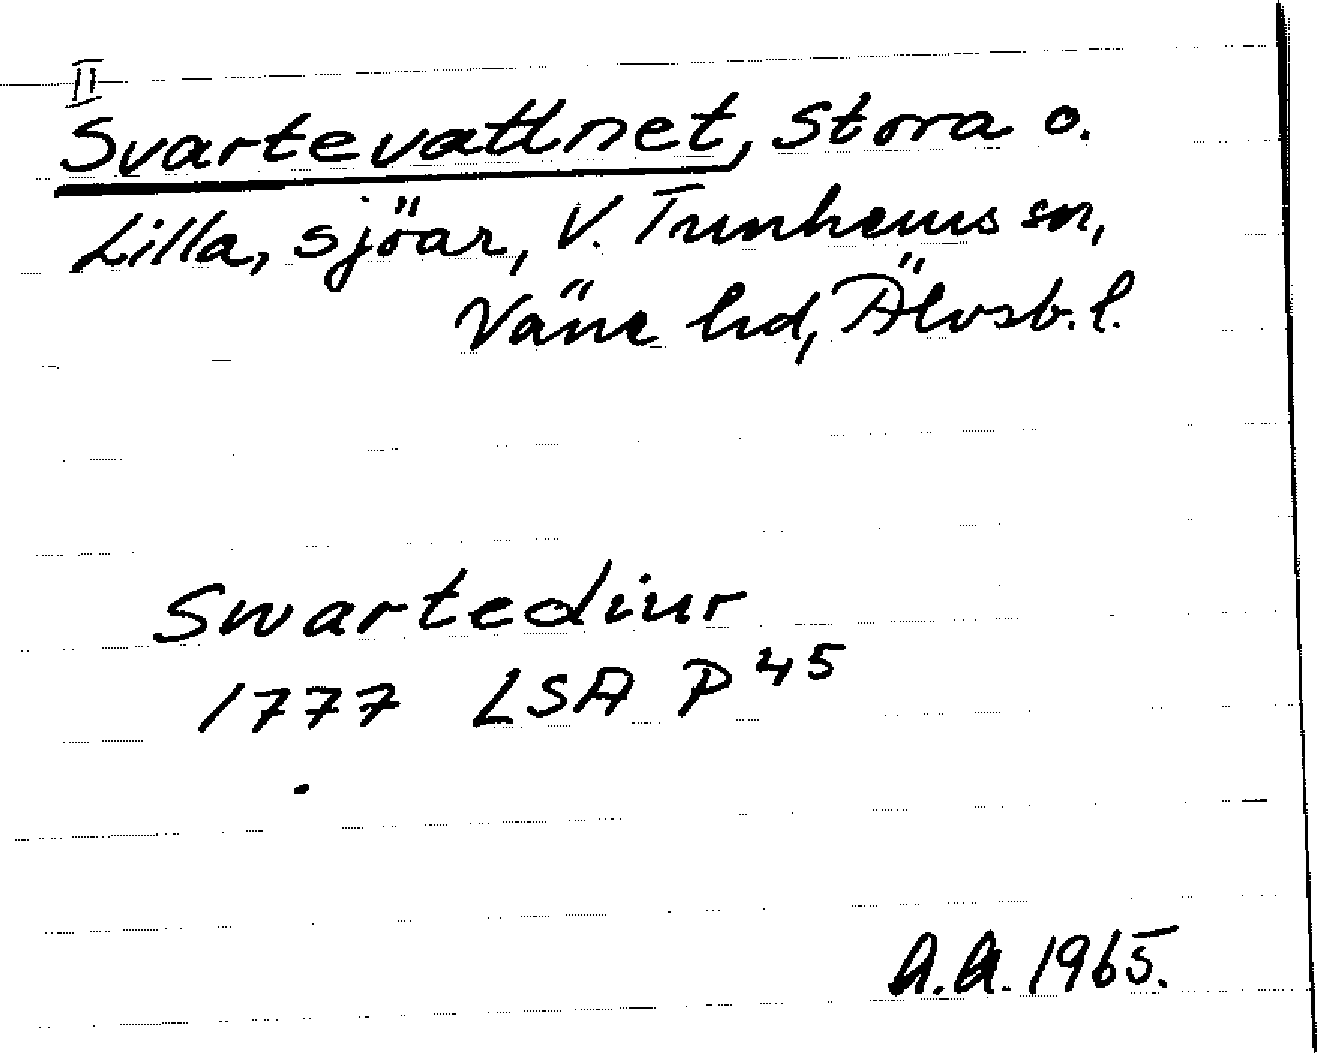 II
Svartevattnet, Stora o.
Lilla, sjöar, V. Tunhems sn,
Väne hd, Älvsb. l.
Swartediur
1777 LSA P 45
A.A. 1965.